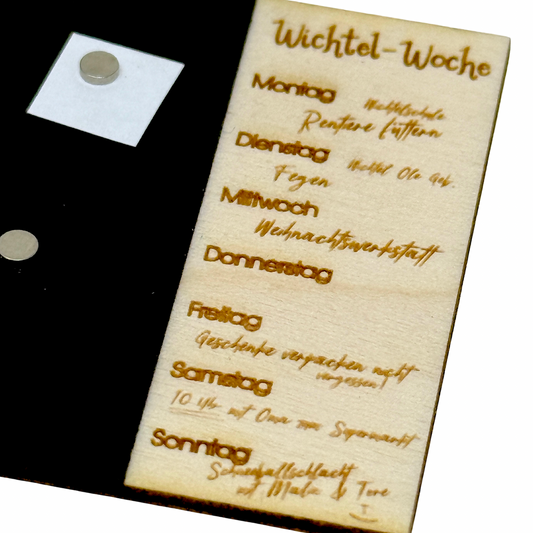 Wichtel-Woche
Montag
Wichtelschule
Rentiere füttern
Dienstag
Wichtel Ole Geb.
Fegen
Mittwoch
Weihnachtswerkstatt
Donnerstag
Freitag
Geschenke verpacken nicht
vergessen!
Samstag
10 Uhr mit Oma zum Supermarkt
Sonntag
Schneeballschlacht
mit Mala & Tore